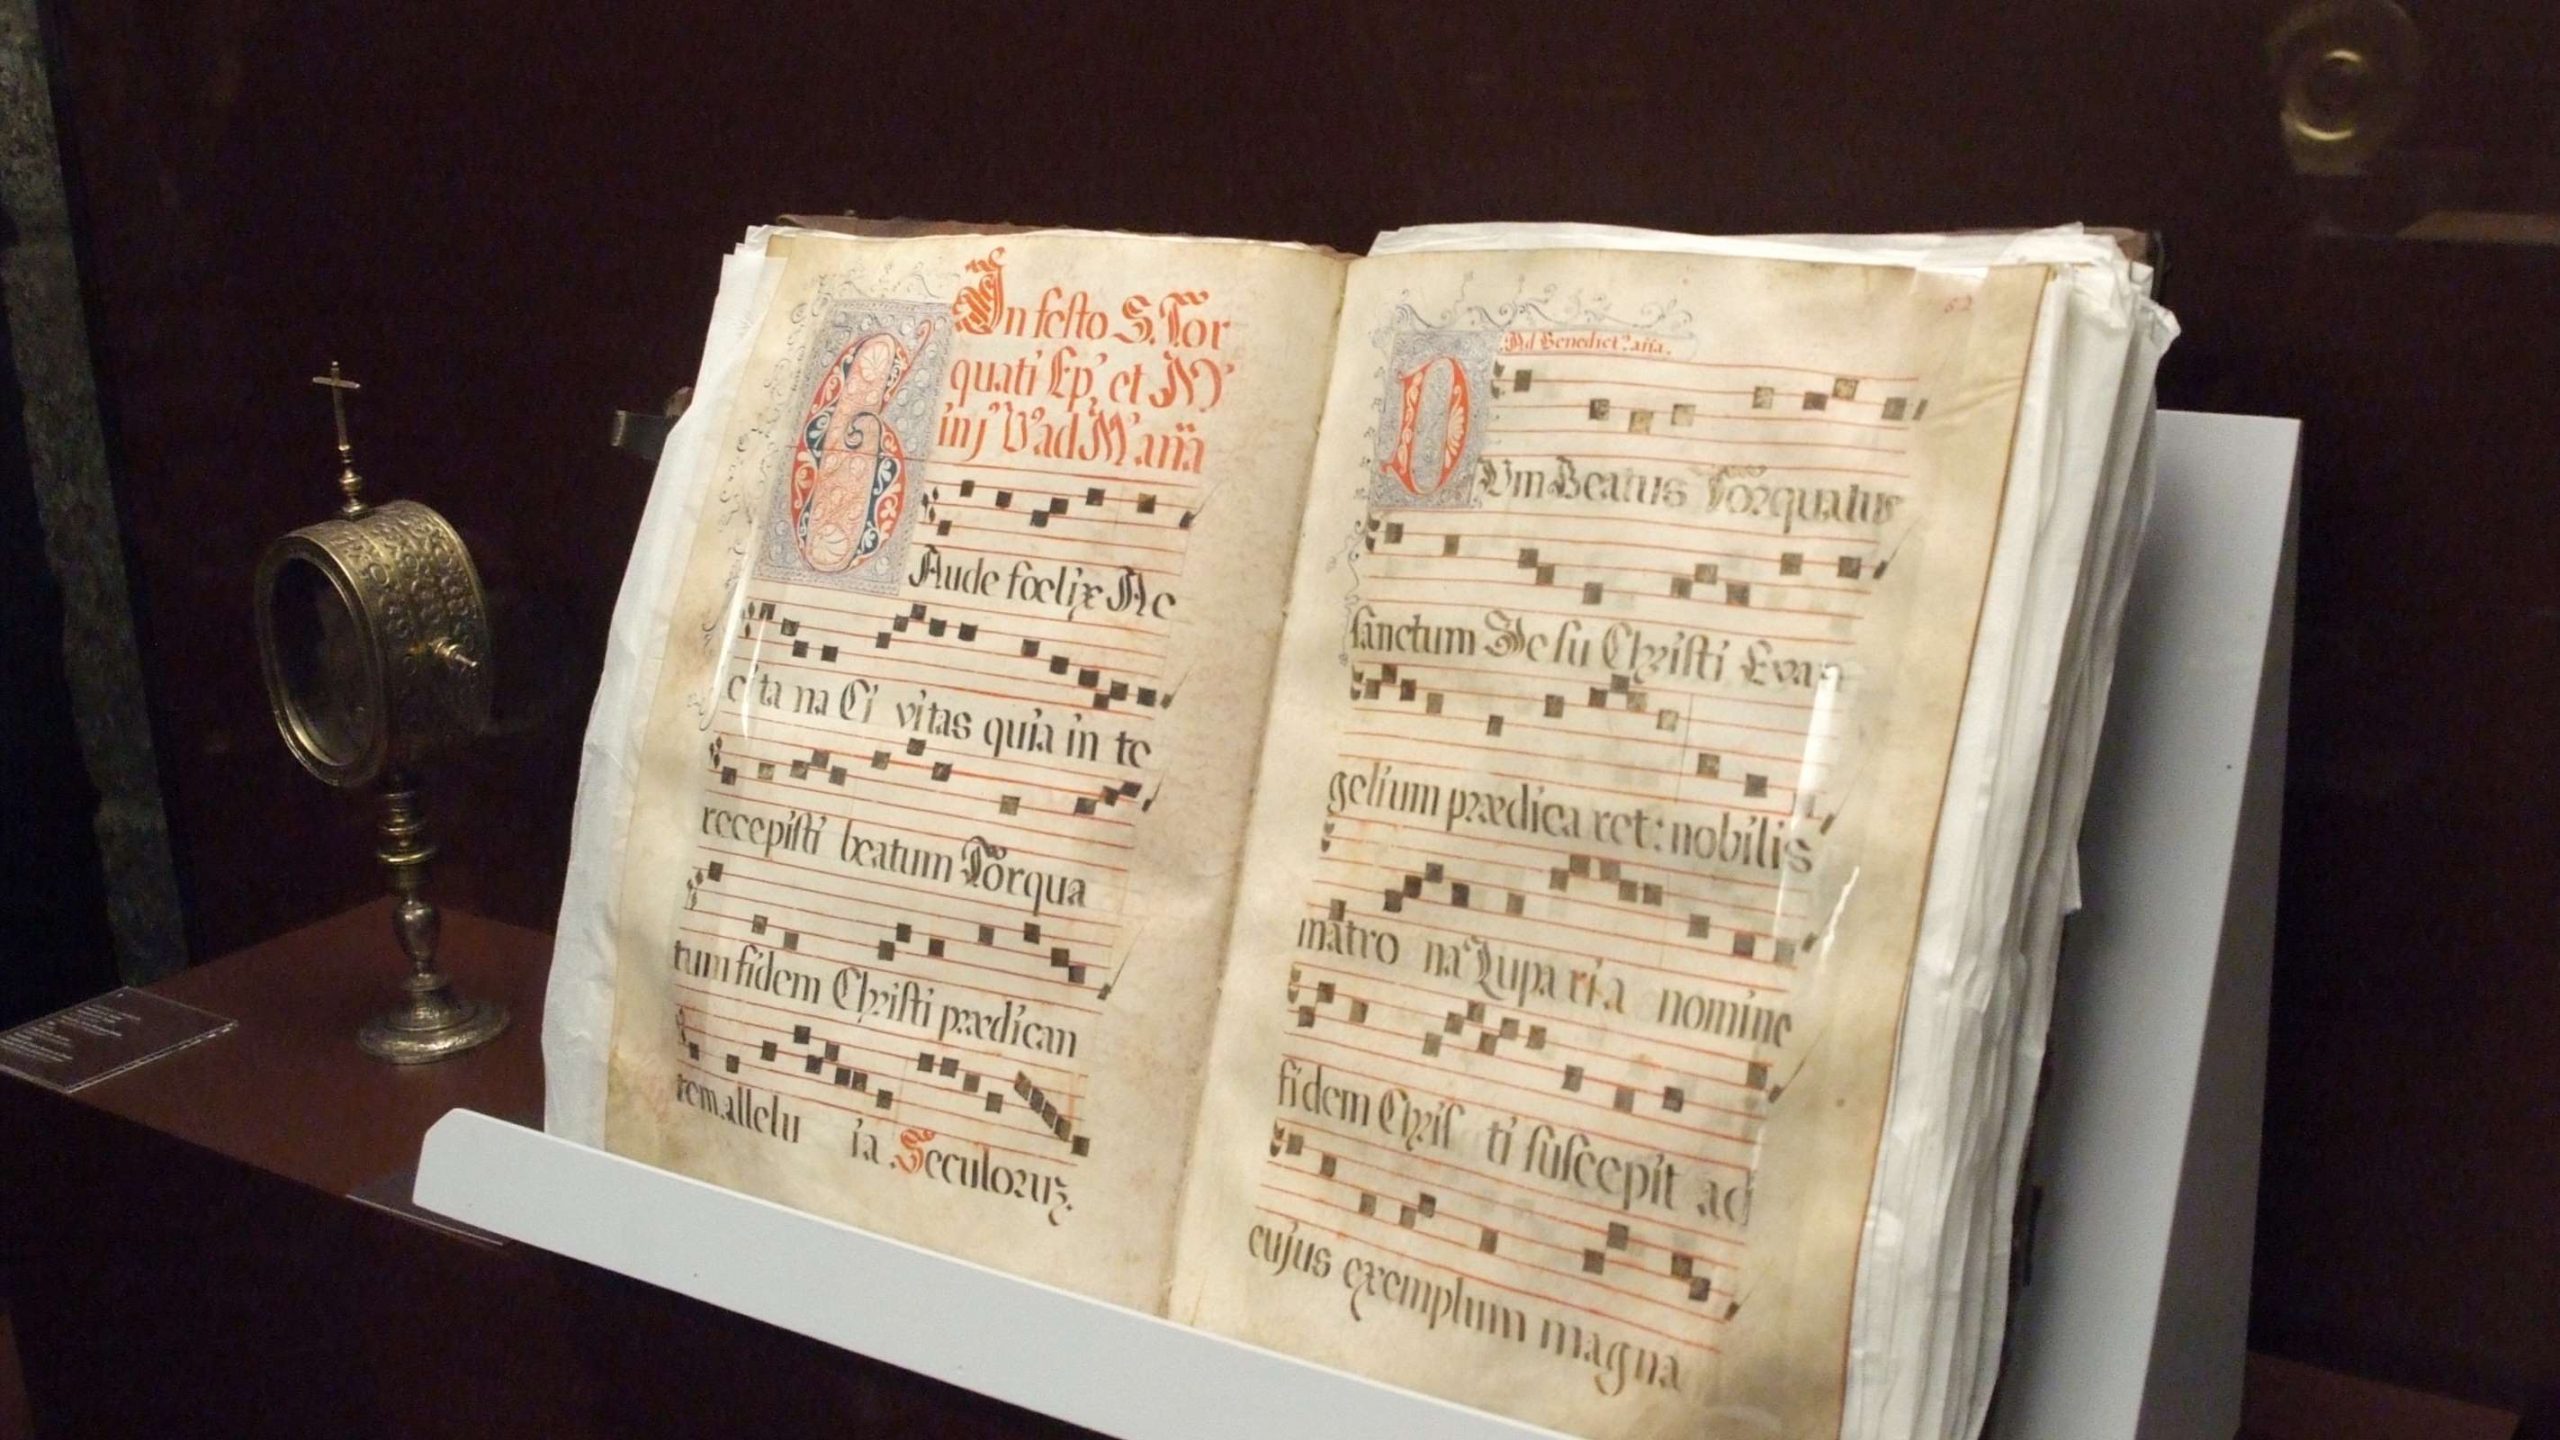 In festo S. Tor
quati Ep.' et M'
inj V'ad M' añã
GAude fœlix Ac
ci ta na Ci vitas quia in te
recepisti beatum Torqua
tum fidem Christi prædican
tem. allelu ia. Seculoruz.
62
Ad Benedict.' aña.
DUm Beatus Torquatus
sanctum Je su Christi Evan
gelium prædica ret: nobilis
matro na Lupa ri a nomine
fidem Chris ti suscepit ad
cujus exemplum magna